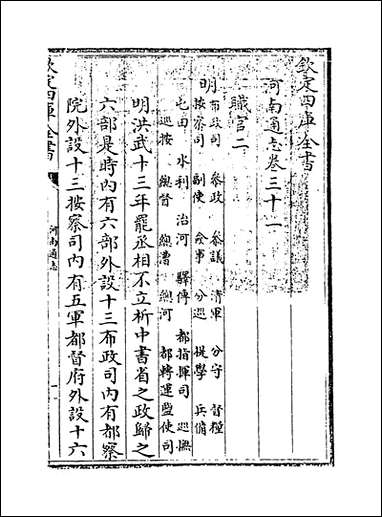 欽定四庫全書
河南通志卷三十一
職官二
明
布政司 參政 參議 清軍 分守 督糧
按察司 副使 僉事 分巡 提學 兵備
屯田 水利 治河 驛傳 都指揮司 巡撫
巡按 總督 總漕 總河 都轉運鹽使司
明洪武十三年罷丞相不立析中書省之政歸之
六部是時內有六部外設十三布政司內有都察
院外設十三按察司內有五軍都督府外設十六
欽定四庫全書
河南通志
一